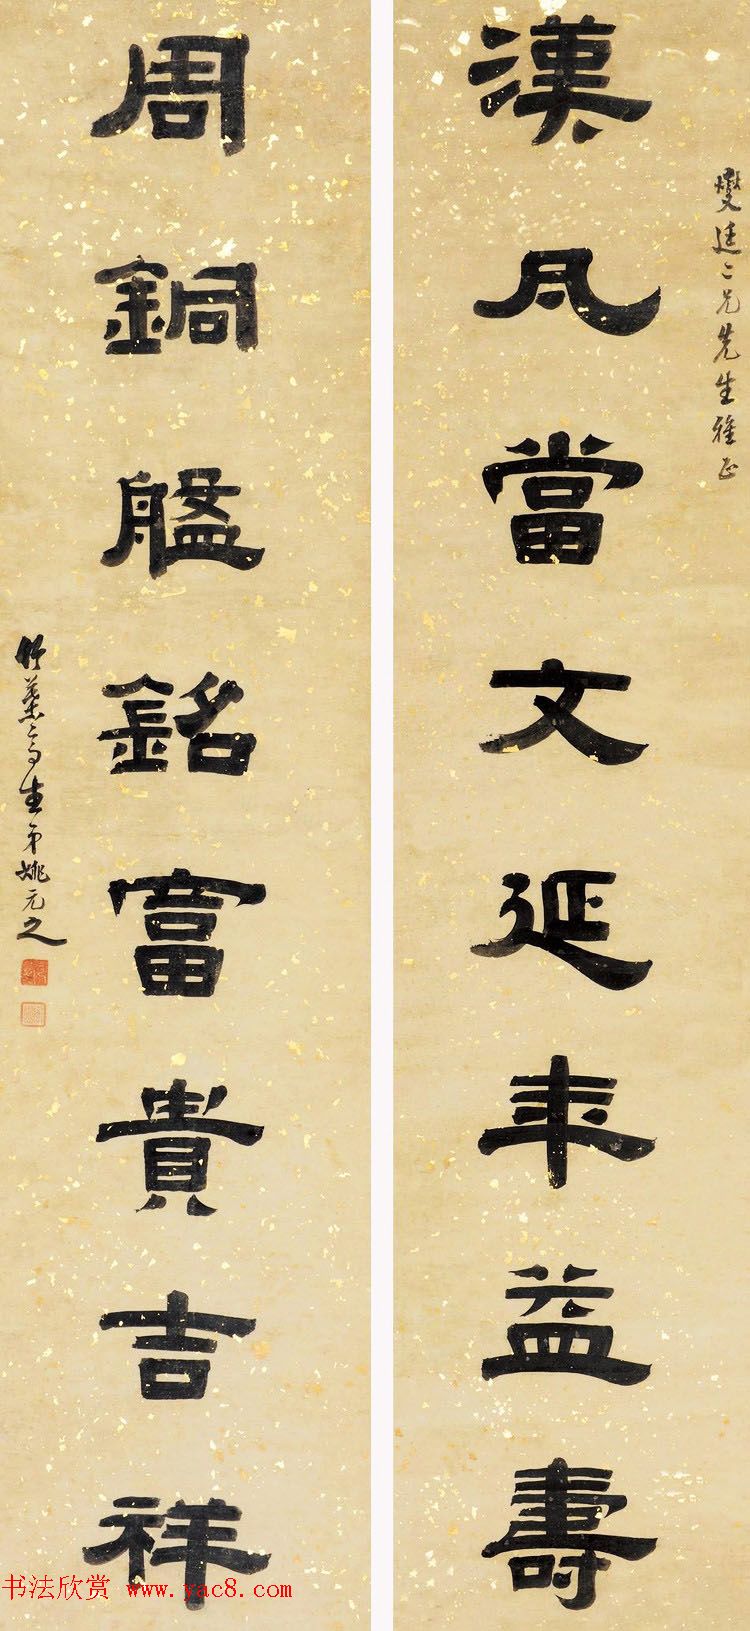 燮廷二兄先生雅正
漢瓦當文延年益壽
周銅盤銘富貴吉祥
竹葉亭生弟姚元之
书法欣赏 www.yac8.com